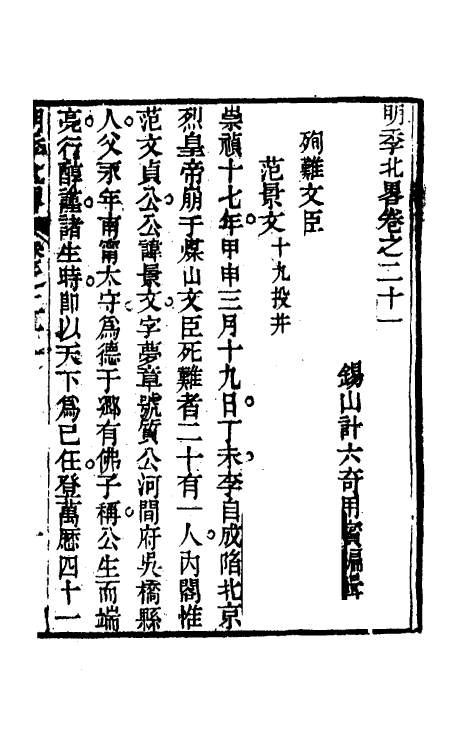 明季北畧卷之二十一
錫山計六奇用賓編輯
殉難文臣
范景文十九投井
崇禎十七年甲申三月十九日丁未李自成陷北京
烈皇帝崩于煤山文臣死難者二十有一人內閣惟
范文貞公公諱景文字夢章號質公河間府吳橋縣
人父永年南甯太守爲德于鄉有佛子稱公生而端
亮行醇謹諸生時即以天下爲己任登萬曆四十一
明季北畧